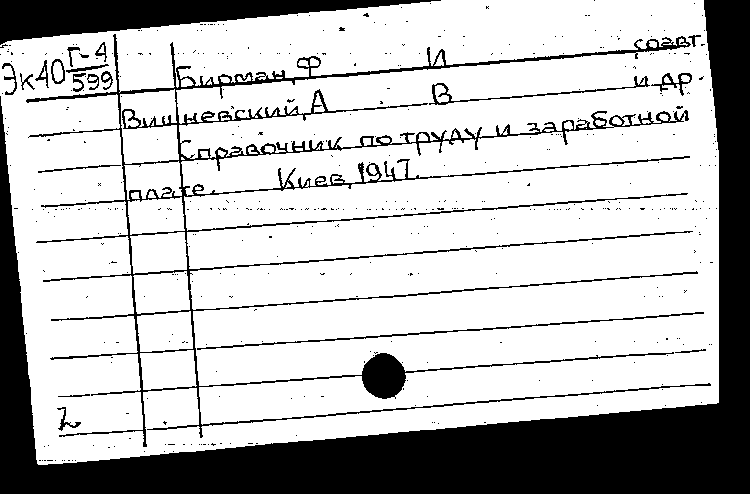 Эк40 Г-4
599
Бирман, Ф И соавт.
Вишневский, А В и др.
Справочник по труду и заработной
плате. Киев, 1947.